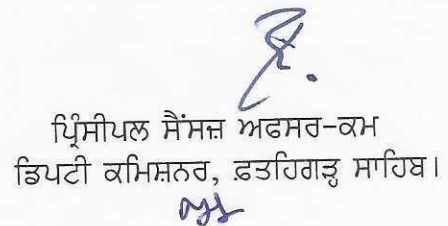 ਪ੍ਰਿੰਸੀਪਲ ਸੈਂਸਜ਼ ਅਫਸਰ-ਕਮ
ਡਿਪਟੀ ਕਮਿਸ਼ਨਰ, ਫ਼ਤਹਿਗੜ੍ਹ ਸਾਹਿਬ।